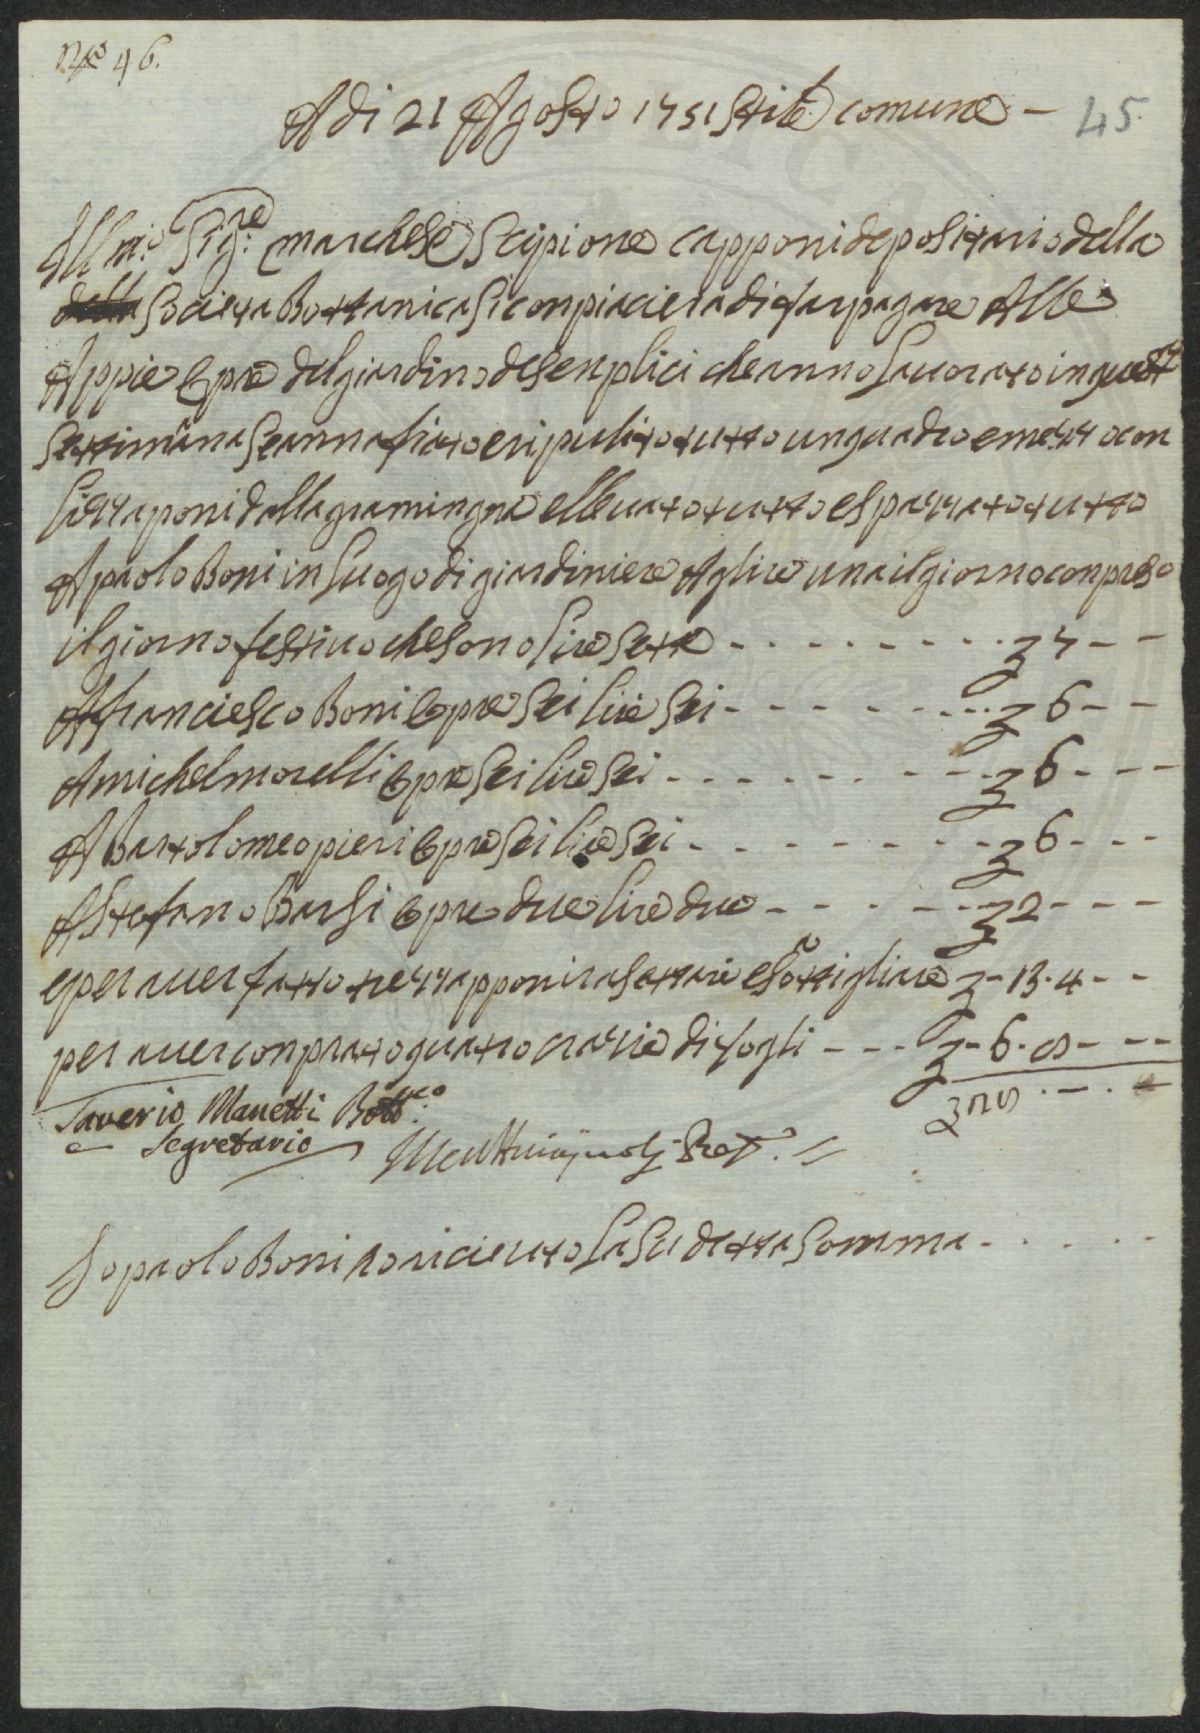 N.o 46.
A di 21 Agosto 1751 Stile comune –
45.
Ill.mo Sig.re marchese Scipione Capponi depositario della
della Societa Bottanica Si conpiaciera di far pagare Alle
Appie Opre del giardino de Senplici che anno lavorato in questa
Settimana Se annafiato e ripulito tutto un quadro e mezzo con
li zapponi dalla gramingna e llevato tutto e spazzato tutto
A paolo Boni in luogo di giardiniere A glire una il giorno conpreso
il giorno festivo che sono lire Sette - - - - - - - - - 7 - -
A franciesco Boni Opre Sei lire Sei - - - - - - - - - 6 - -
A michel morelli Opre Sei lire Sei - - - - - - - - - 6 - - -
A Bartolomeo pieri Opre Sei lire Sei - - - - - - - - - 6 - - -
A Stefano Barsi Opre due lire due - - - - - - - 2 - - -
e per aver fatto tre zzapponi rasettare e Sottigliare - 13. 4 - -
per aver conprato quatro crazie di fogli - - - - 6. 8 - - -
Saverio Manetti Bott.co
e Segretario
28 . - . -
Io paolo Boni o riceuto la Su detta Somma - . . . . .